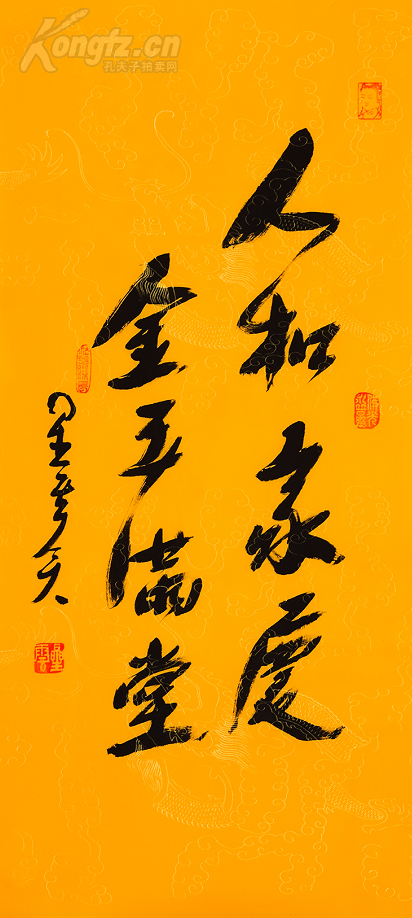 Kongfz.cn
孔夫子拍卖网
人和家慶
金玉滿堂
星雲